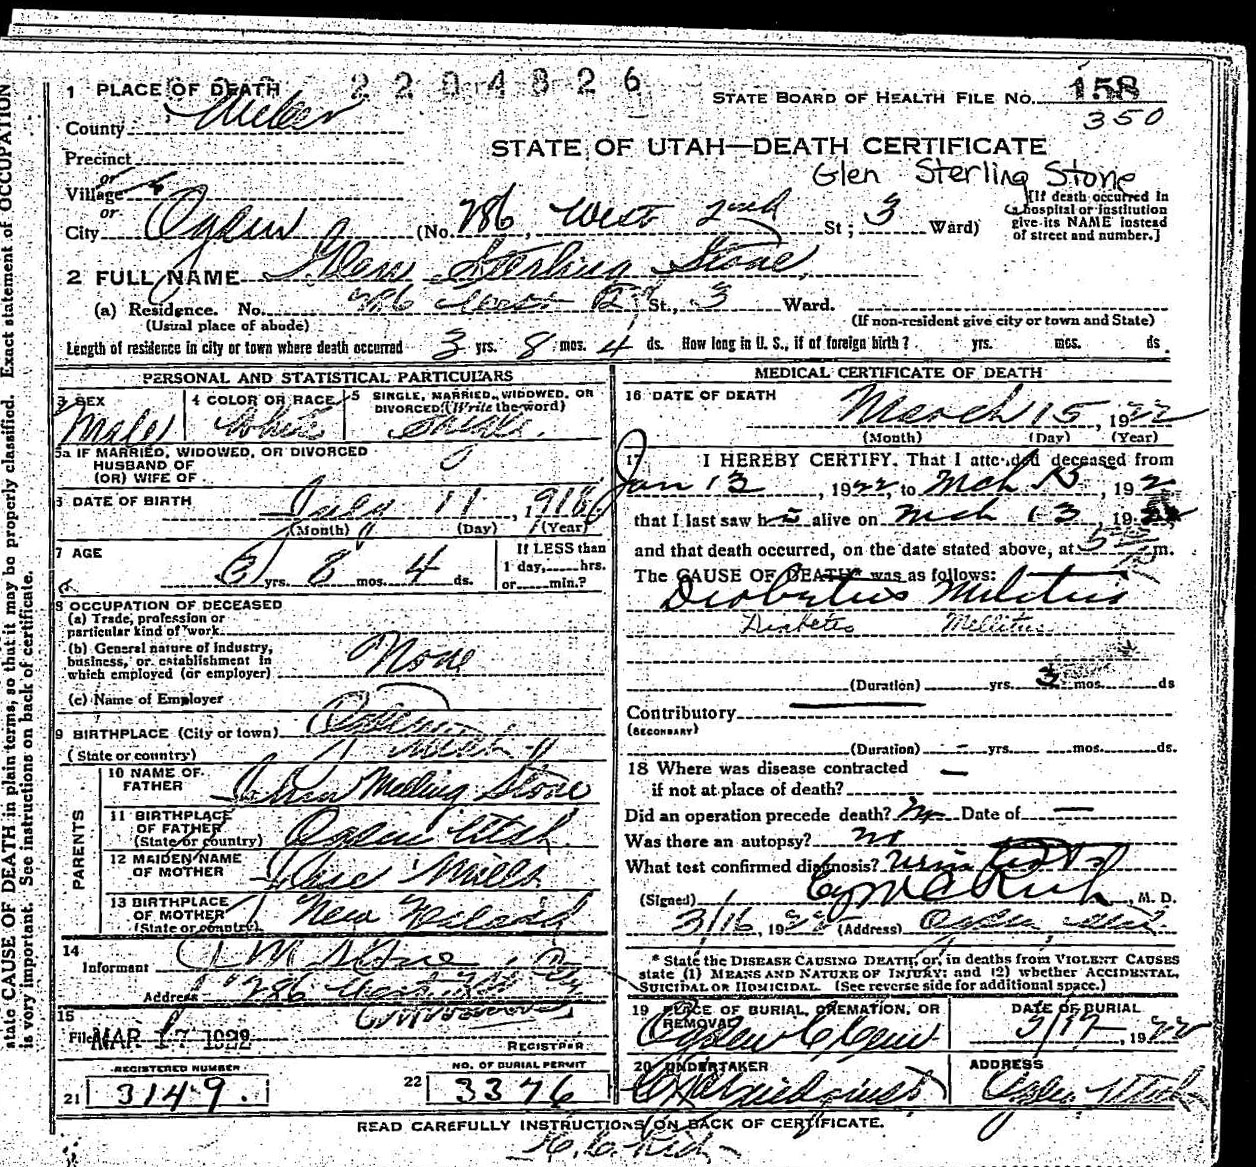 state CAUSE OF DEATH in plain terms, so that it may be properly classified. Exact statement of OCCUPATION
is very important. See instructions on back of certificate.
2204826
1 PLACE OF DEATH
STATE BOARD OF HEALTH FILE No. 158
350
County Weber
STATE OF UTAH—DEATH CERTIFICATE
Precinct
Glen Sterling Stone
or
Village
or
City Ogden (No. 286, West 2nd St; 3 Ward)
[If death occurred in
a hospital or institution
give its NAME instead
of street and number.]
2 FULL NAME Glen Sterling Stone
(a) Residence. No. 286 West 2 St., 3 Ward.
(Usual place of abode)
(If non-resident give city or town and State)
Length of residence in city or town where death occurred 3 yrs. 8 mos. 4 ds. How long in U. S., if of foreign birth? yrs. mos. ds.
PERSONAL AND STATISTICAL PARTICULARS
3 SEX
Male
4 COLOR OR RACE
White
5 SINGLE, MARRIED, WIDOWED, OR
DIVORCED (Write the word)
Single
5a IF MARRIED, WIDOWED, OR DIVORCED
HUSBAND OF
(OR) WIFE OF
6 DATE OF BIRTH
July 11, 1918
(Month) (Day) (Year)
7 AGE
3 yrs. 8 mos. 4 ds.
If LESS than
1 day, hrs.
or min.?
8 OCCUPATION OF DECEASED
(a) Trade, profession or
particular kind of work
(b) General nature of industry,
business, or establishment in
which employed (or employer) None
(c) Name of Employer
9 BIRTHPLACE (City or town) Ogden
(State or country) Utah
PARENTS
10 NAME OF
FATHER Melling Stone
11 BIRTHPLACE
OF FATHER
(State or country) Ogden Utah
12 MAIDEN NAME
OF MOTHER Mills
13 BIRTHPLACE
OF MOTHER
(State or country) New Zealand
14
Informant J M Stone
Address 286 West 2nd
15
Filed MAR 17 1922
REGISTRAR
REGISTERED NUMBER
21 3149.
NO. OF BURIAL PERMIT
22 3376
MEDICAL CERTIFICATE OF DEATH
16 DATE OF DEATH
March 15, 1922
(Month) (Day) (Year)
17 I HEREBY CERTIFY, That I attended deceased from
Jan 13, 1922, to Mch 15, 192
that I last saw h alive on Mch 13 192
and that death occurred, on the date stated above, at 5 m.
The CAUSE OF DEATH* was as follows:
Diabetus Melitus
Diabetes Mellitus
(Duration) yrs. 3 mos. ds
Contributory
(SECONDARY)
(Duration) - yrs. mos. ds.
18 Where was disease contracted
if not at place of death? —
Did an operation precede death? no Date of —
Was there an autopsy? no
What test confirmed diagnosis?
(Signed) Rich, M. D.
3/16, 1922 (Address) Ogden
* State the DISEASE CAUSING DEATH, or, in deaths from VIOLENT CAUSES
state (1) MEANS AND NATURE OF INJURY; and (2) whether ACCIDENTAL,
SUICIDAL OR HOMICIDAL. (See reverse side for additional space.)
19 PLACE OF BURIAL, CREMATION, OR
REMOVAL
Ogden C Cem
DATE OF BURIAL
3/17, 1922
20 UNDERTAKER
ADDRESS
Ogden Utah
READ CAREFULLY INSTRUCTIONS ON BACK OF CERTIFICATE.
Rich